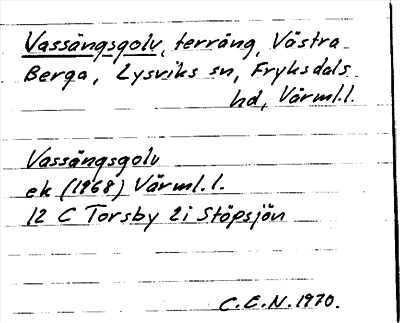 Vassängsgolv, terräng, Västra
Berga, Lysviks sn, Fryksdals
hd, Värml.l.
Vassängsgolv
ek (1968) Värml.l.
12 C Torsby 2i Stöpsjön
C.E.N. 1970.